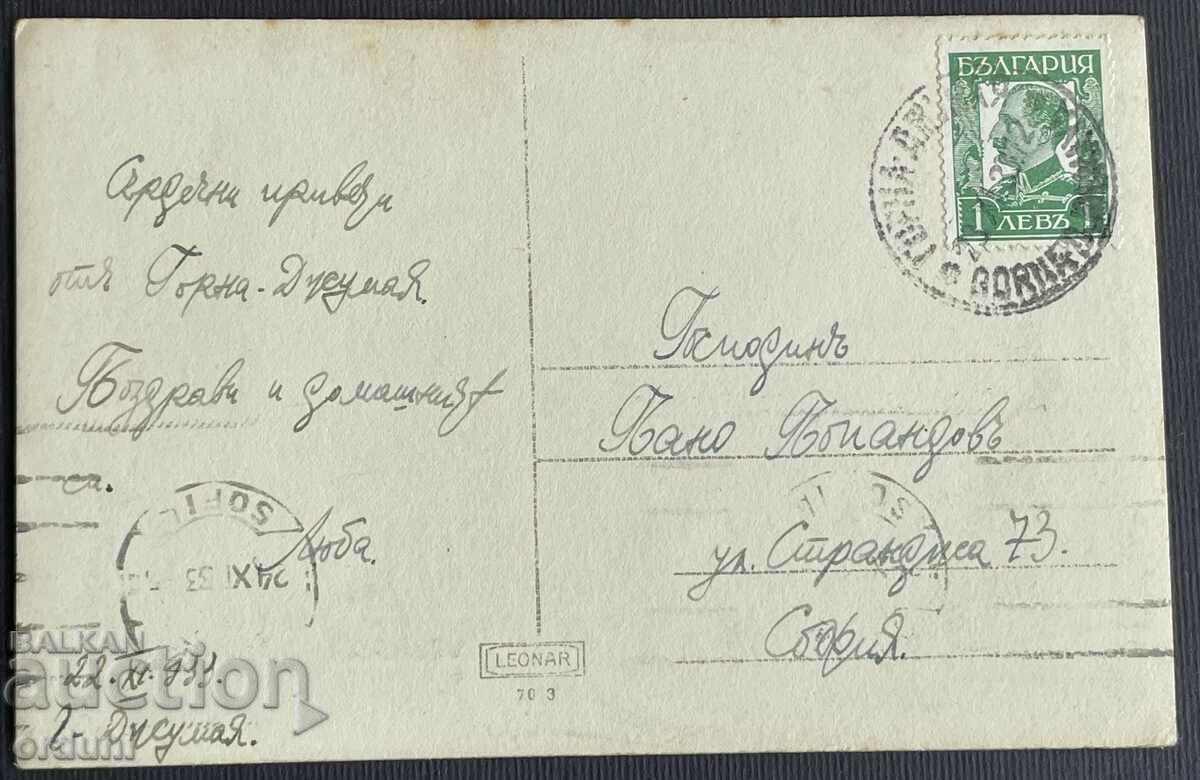 Сърдечни привети
отъ Горна-Джумая.
Поздрави и домашнитѣ
си.
Люба.
22.XI.933.
Г. Джумая.
БЪЛГАРИЯ
1 ЛЕВЪ 1
ГОРНА
GORNA
Господинъ
Пано
ул. Странджа 73.
София.
SOFI
24 XI 33
LEONAR
70 3
BALKAN
auction
orduni